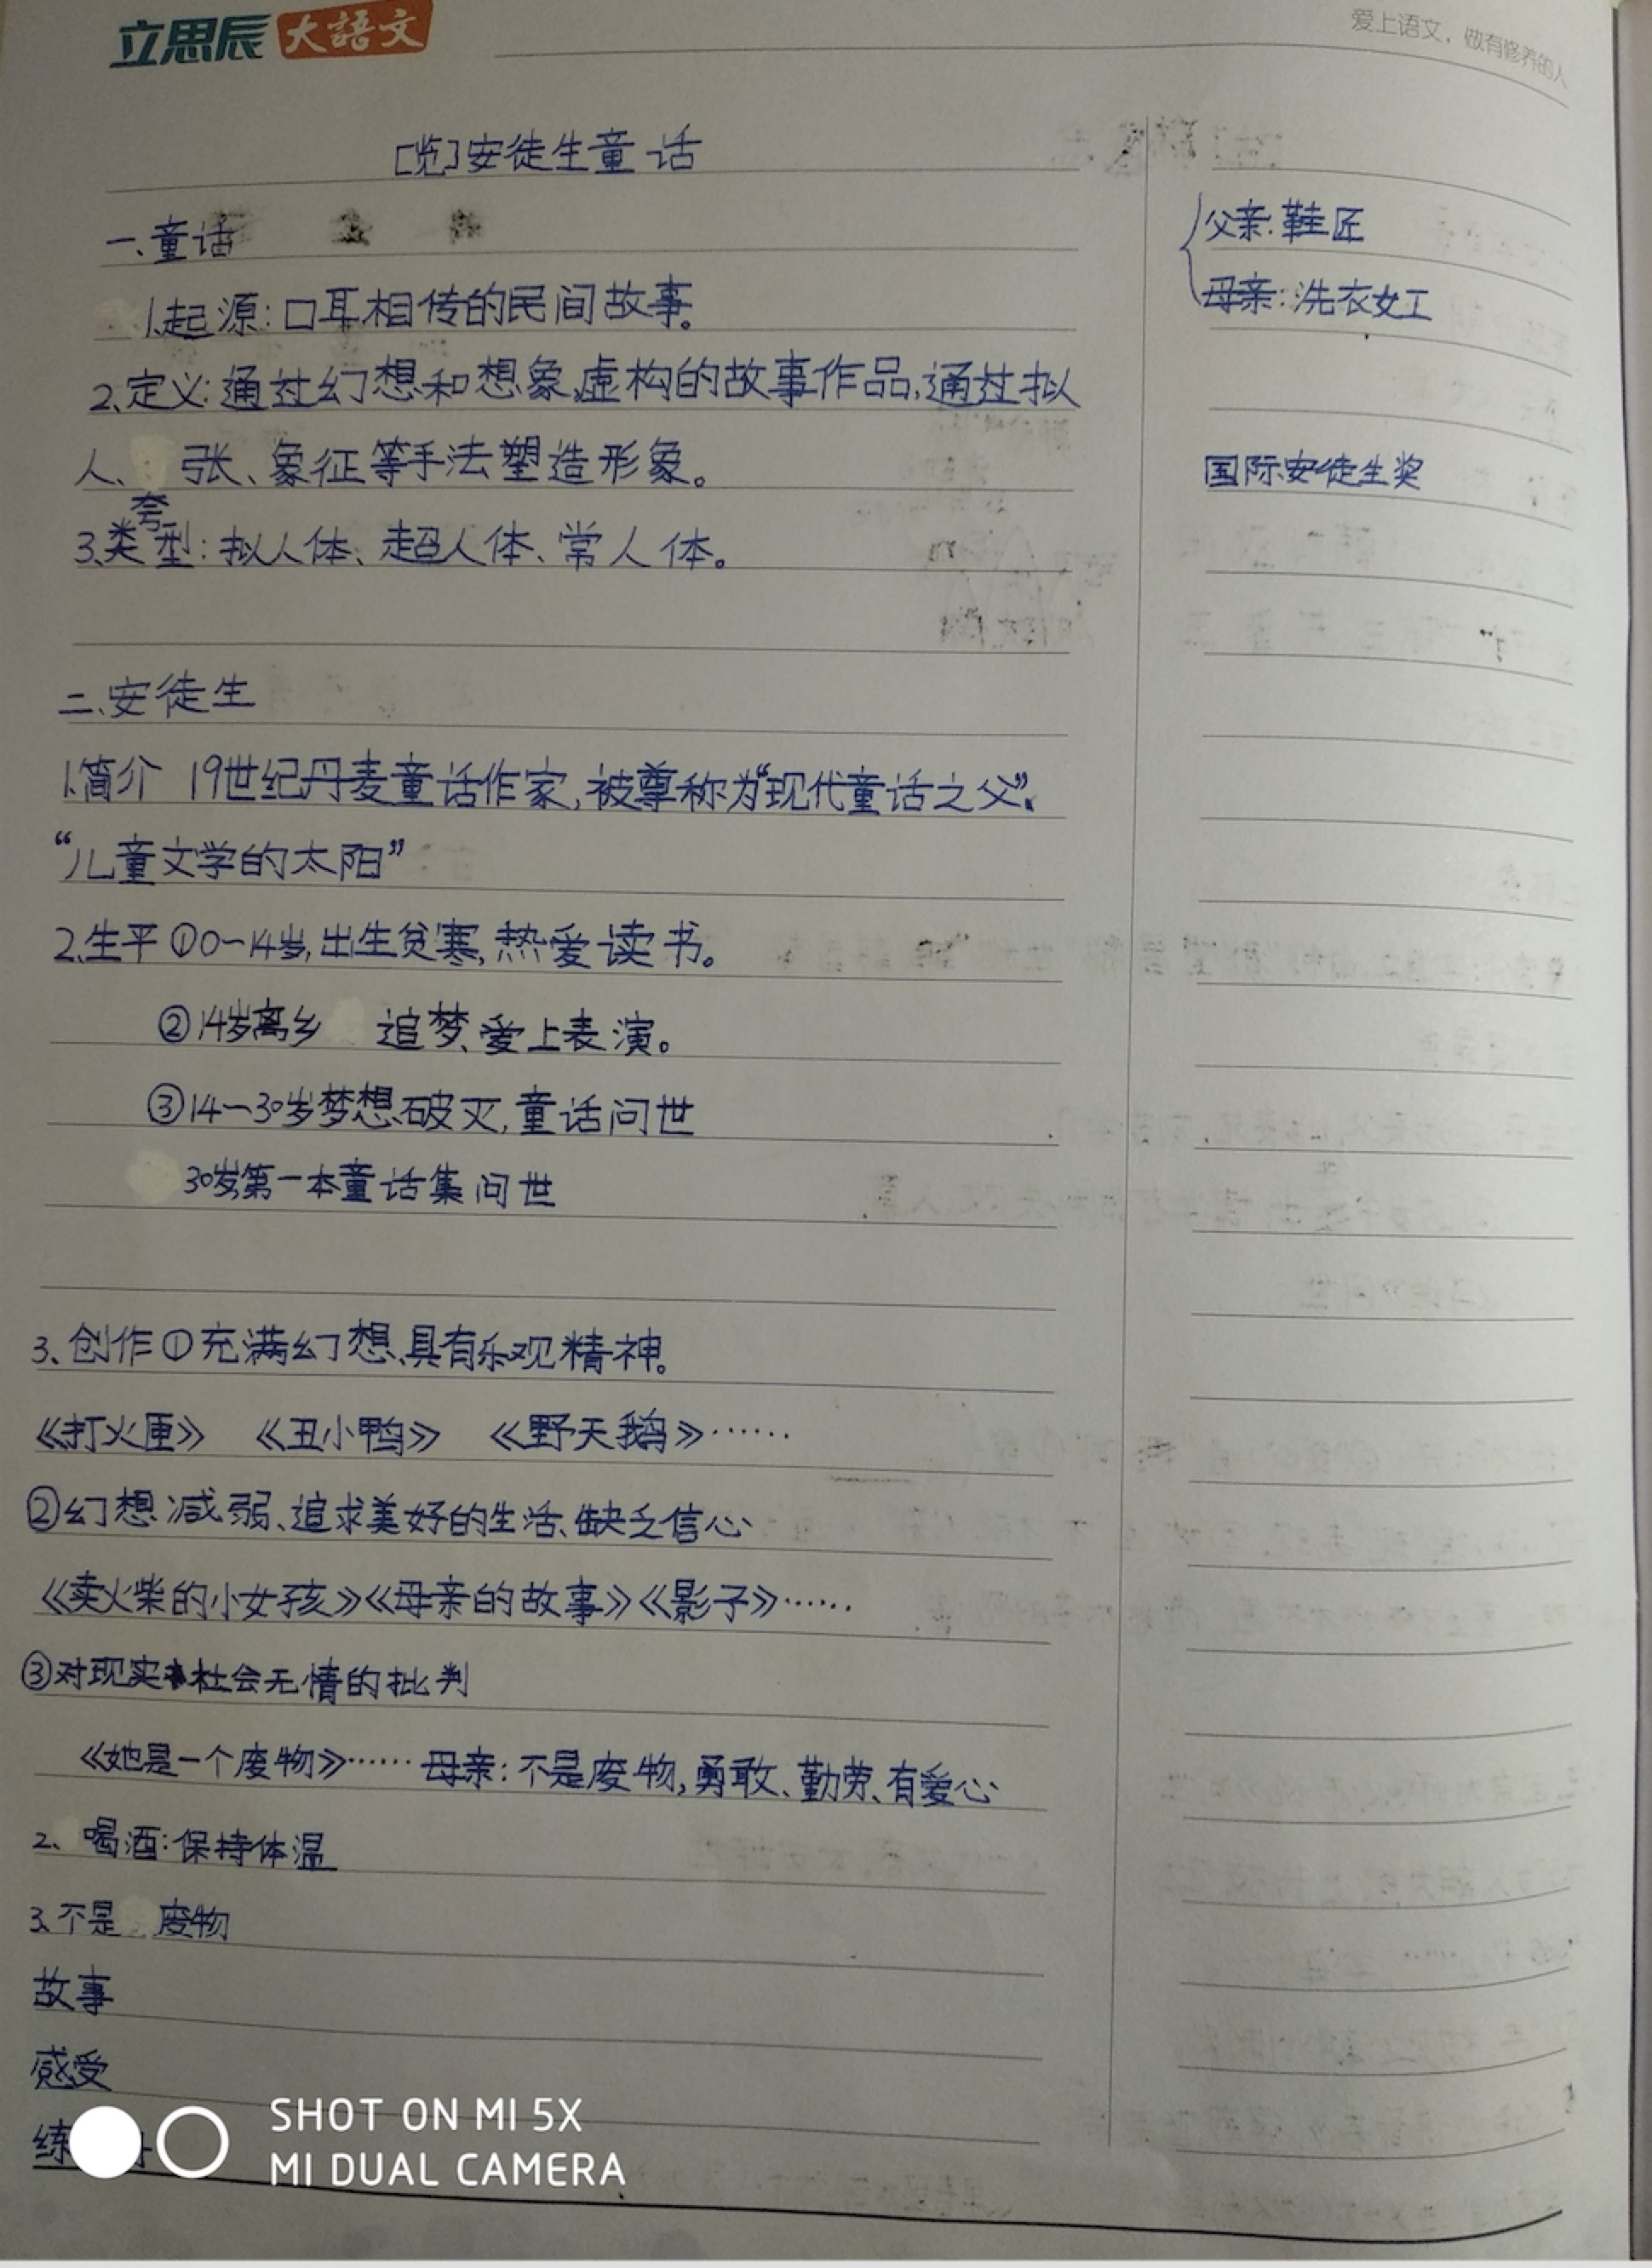 立思辰大語文
爱上语文，做有修养的人
[览]安徒生童话
一、童话
1.起源：口耳相传的民间故事。
2、定义：通过幻想和想象,虚构的故事作品,通过拟
人、夸张、象征等手法塑造形象。
3、类型：拟人体、超人体、常人体。
二、安徒生
1.简介 19世纪丹麦童话作家,被尊称为“现代童话之父”、
“儿童文学的太阳”
2、生平①0~14岁,出生贫寒,热爱读书。
②14岁离乡 追梦、爱上表演。
③14—30岁梦想破灭,童话问世
30岁第一本童话集问世
3、创作①充满幻想、具有乐观精神。
《打火匣》 《丑小鸭》 《野天鹅》……
②幻想减弱、追求美好的生活、缺乏信心
《卖火柴的小女孩》《母亲的故事》《影子》……
③对现实社会无情的批判
《她是一个废物》……母亲：不是废物,勇敢、勤劳、有爱心
2、喝酒：保持体温
3、不是 废物
故事
感受
练
父亲：鞋匠
母亲：洗衣女工
国际安徒生奖
SHOT ON MI 5X
MI DUAL CAMERA